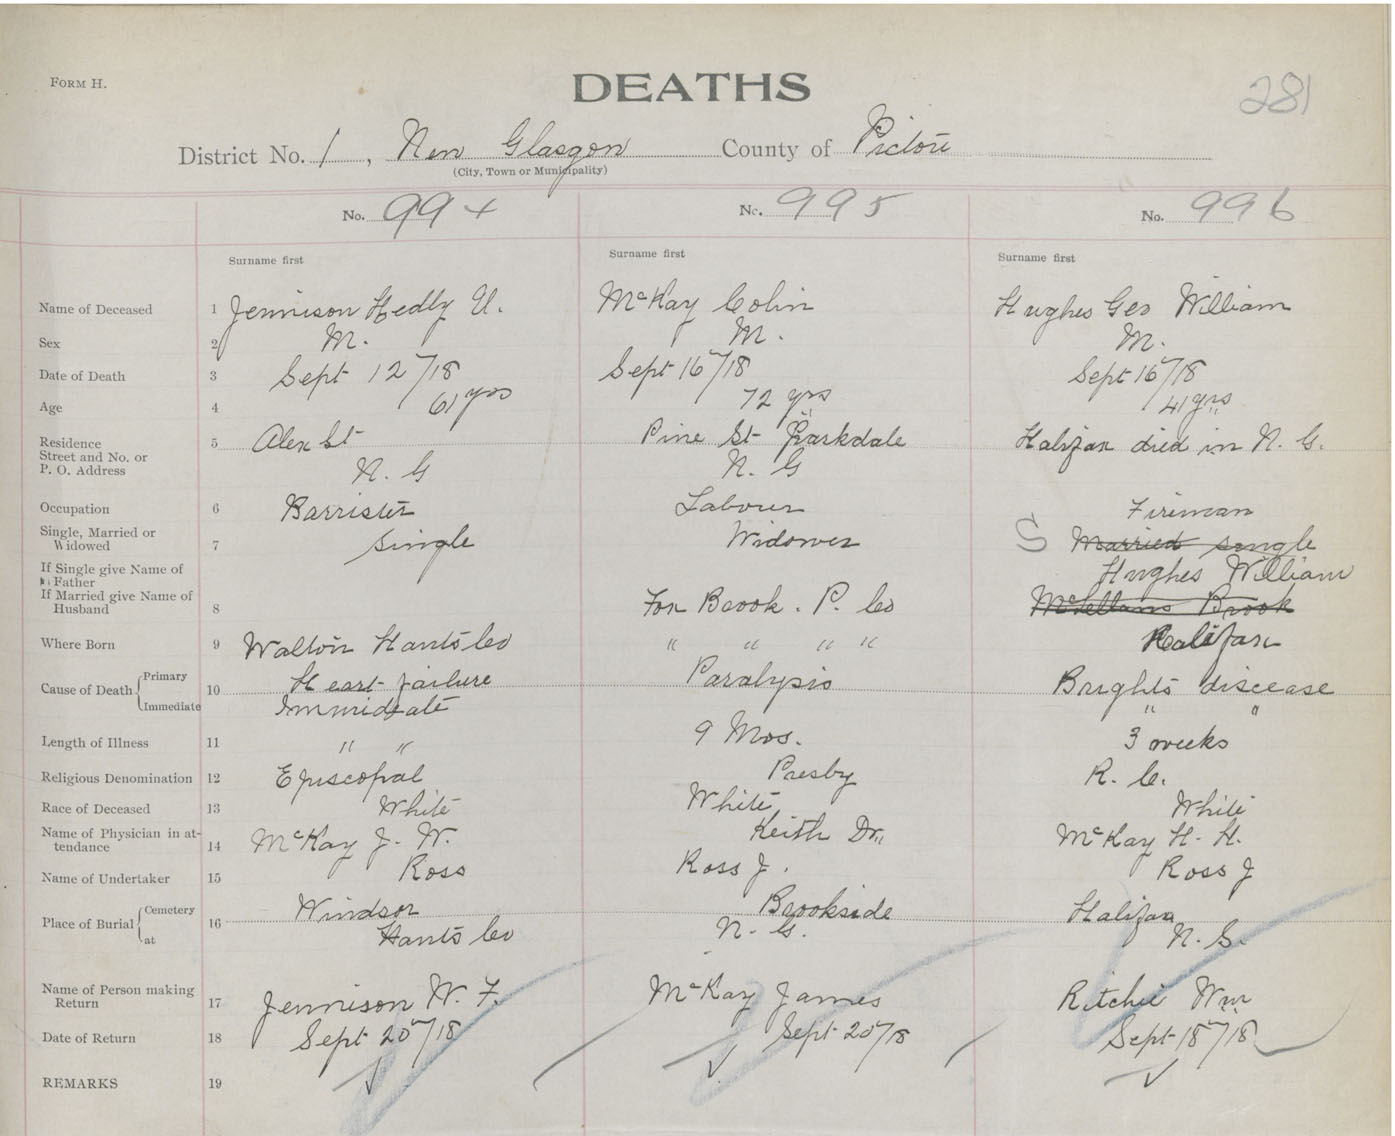 FORM H.
DEATHS
281
District No. 1, New Glasgow County of Pictou
(City, Town or Municipality)
No. 994 No. 995 No. 996
Surname first Surname first Surname first
Name of Deceased 1 Jennison Hedly U. McKay Colin Hughes Geo William
Sex 2 M. M. M.
Date of Death 3 Sept 12"/18 Sept 16"/18 Sept 16"/18
Age 4 61 yrs 72 yrs 41 yrs
Residence 5 Alex St Pine St Parkdale Halifax died in N. G.
Street and No. or
P. O. Address N. G N. G
Occupation 6 Barrister Labourer Fireman
Single, Married or
Widowed 7 Single Widower S Married single
If Single give Name of
Father Hughes William
If Married give Name of
Husband 8 Fox Brook. P. Co McLellans Brook
Where Born 9 Walton Hants Co " " " " Halifax
Cause of Death Primary 10 Heart failure Paralysis Brights discease
Immediate Immidiate " "
Length of Illness 11 " " 9 Mos. 3 weeks
Religious Denomination 12 Episcopal Presby R. C.
Race of Deceased 13 White White White
Name of Physician in at-
tendance 14 McKay J. W. Keith Dr. McKay H. H.
Name of Undertaker 15 Ross Ross J. Ross J
Place of Burial Cemetery 16 Windsor Brookside Halifax
at Hants Co N. G. N. S.
Name of Person making
Return 17 Jennison W. F. McKay James Ritchie Wm
Date of Return 18 Sept 20"/18 Sept 20"/18 Sept 18"/18
REMARKS 19